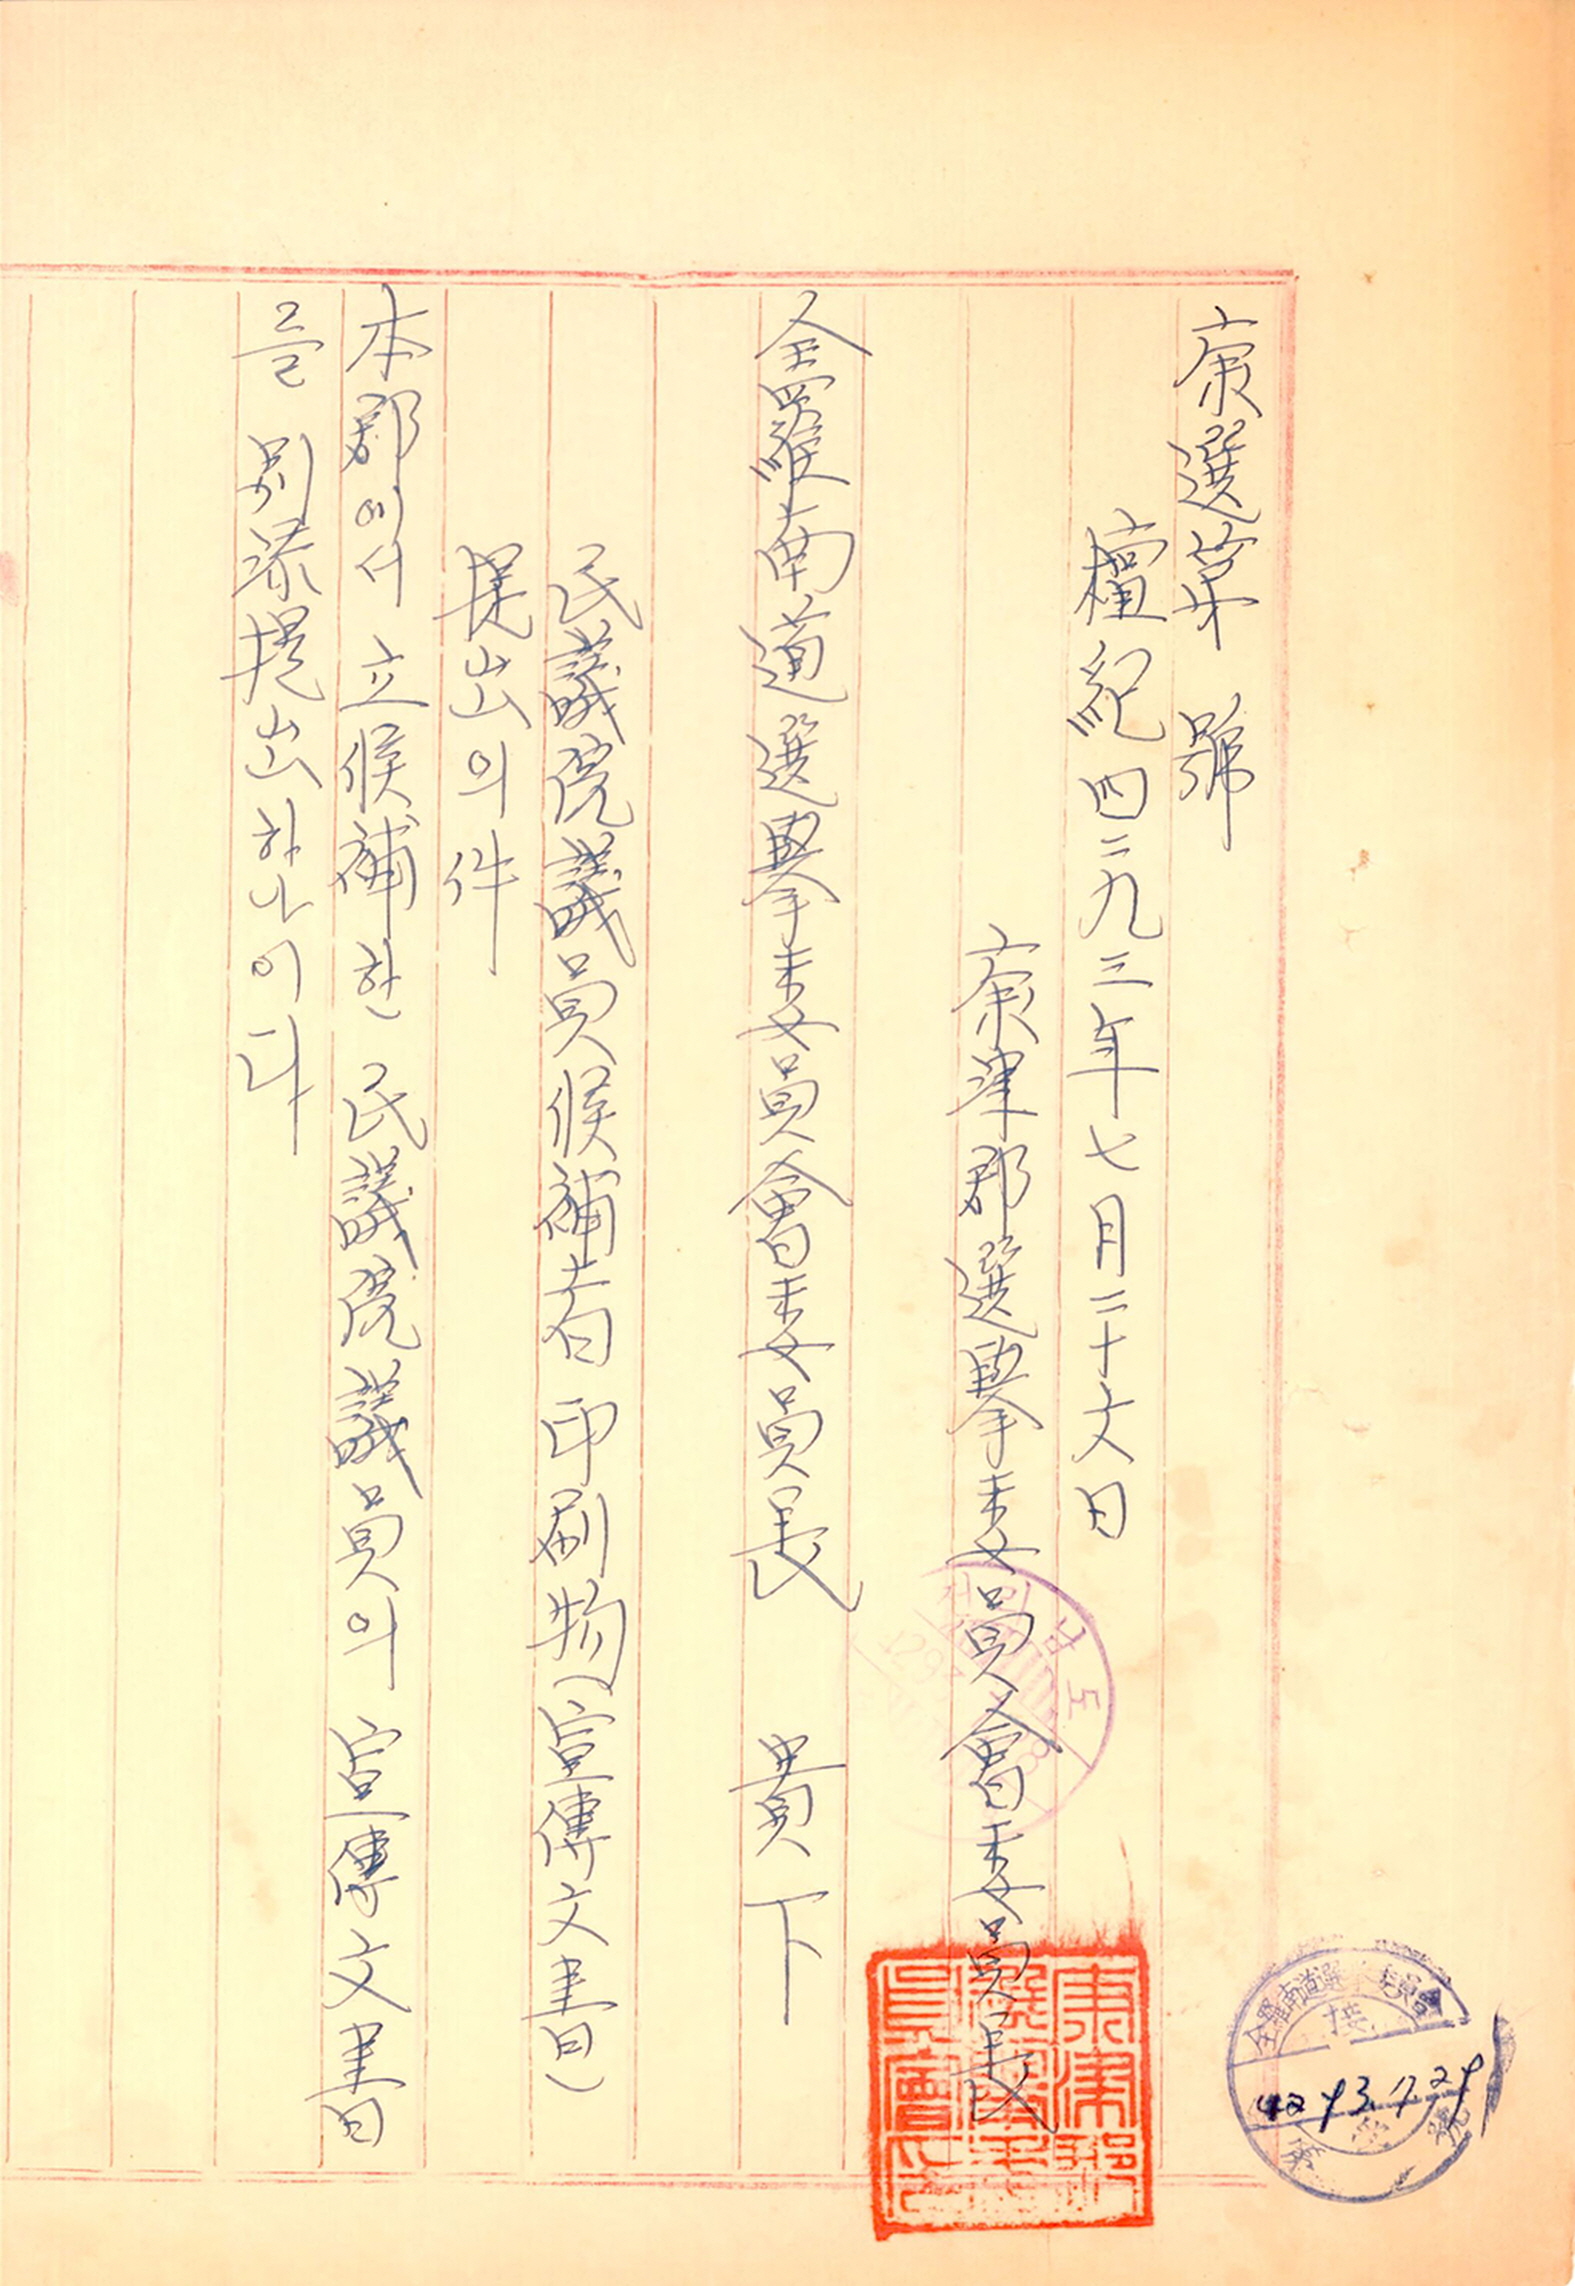 康選第　號
檀紀四二九三年七月二十六日
康津郡選擧委員會委員長
全羅南道選擧委員會委員長　貴下
民議院議員候補者印刷物宣傳文書(
提出의件
本郡에서 立候補한 民議院議員의 宣傳文書
를 別添提出하나이다
康津郡
選擧委
員會之
全羅南道選擧委員會
接
4293.7.29
受
第 號
남도